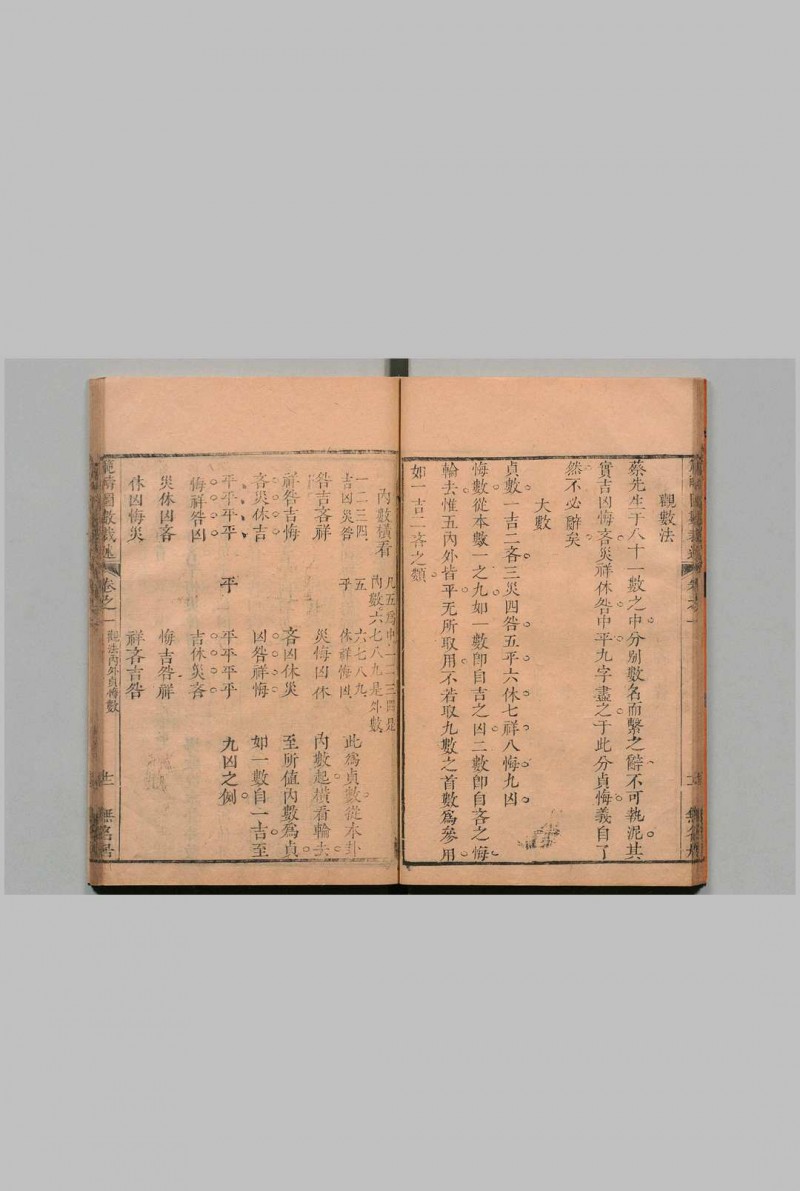 觀數法
蔡先生于八十一數之中分别數名而繫之辭不可執泥其
實吉凶悔吝災祥休咎中平九字盡之于此分貞悔義自了
然不必辭矣
大數
貞數一吉二吝三災四咎五平六休七祥八悔九凶
悔數從本數一之九如一數卽自吉之凶二數卽自吝之悔
輪去惟五內外皆平无所取用不若取九數之首數爲參用
如一吉二吝之類
內數橫看
凡五爲中一二三四是
內數六七八九是外數
一二三四 五 六七八九
吉凶災咎 平 休祥悔凶 此爲貞數從本卦
咎吉吝祥 災悔凶休 內數起橫看輪去
祥咎吉悔 吝凶休災 至所值內數爲貞
吝災休吉 凶咎祥悔 如一數自一吉至
平平平平 平 平平平平 九凶之例
悔祥咎凶 吉休災吝
災休凶吝 悔吉咎祥
休凶悔災 祥吝吉咎
範疇圖數義述 卷之一 觀法內外貞悔數 十二 無名居